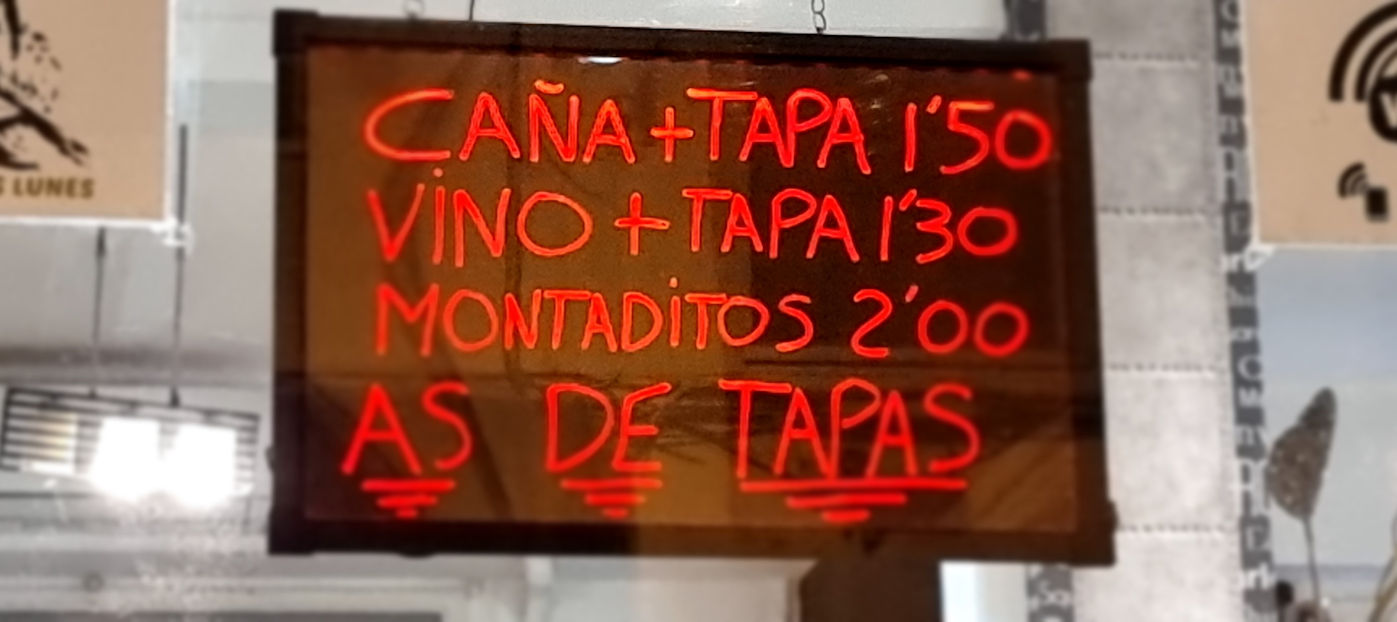 CAÑA + TAPA 1'50
VINO + TAPA 1'30
MONTADITOS 2'00
AS DE TAPAS
LUNES